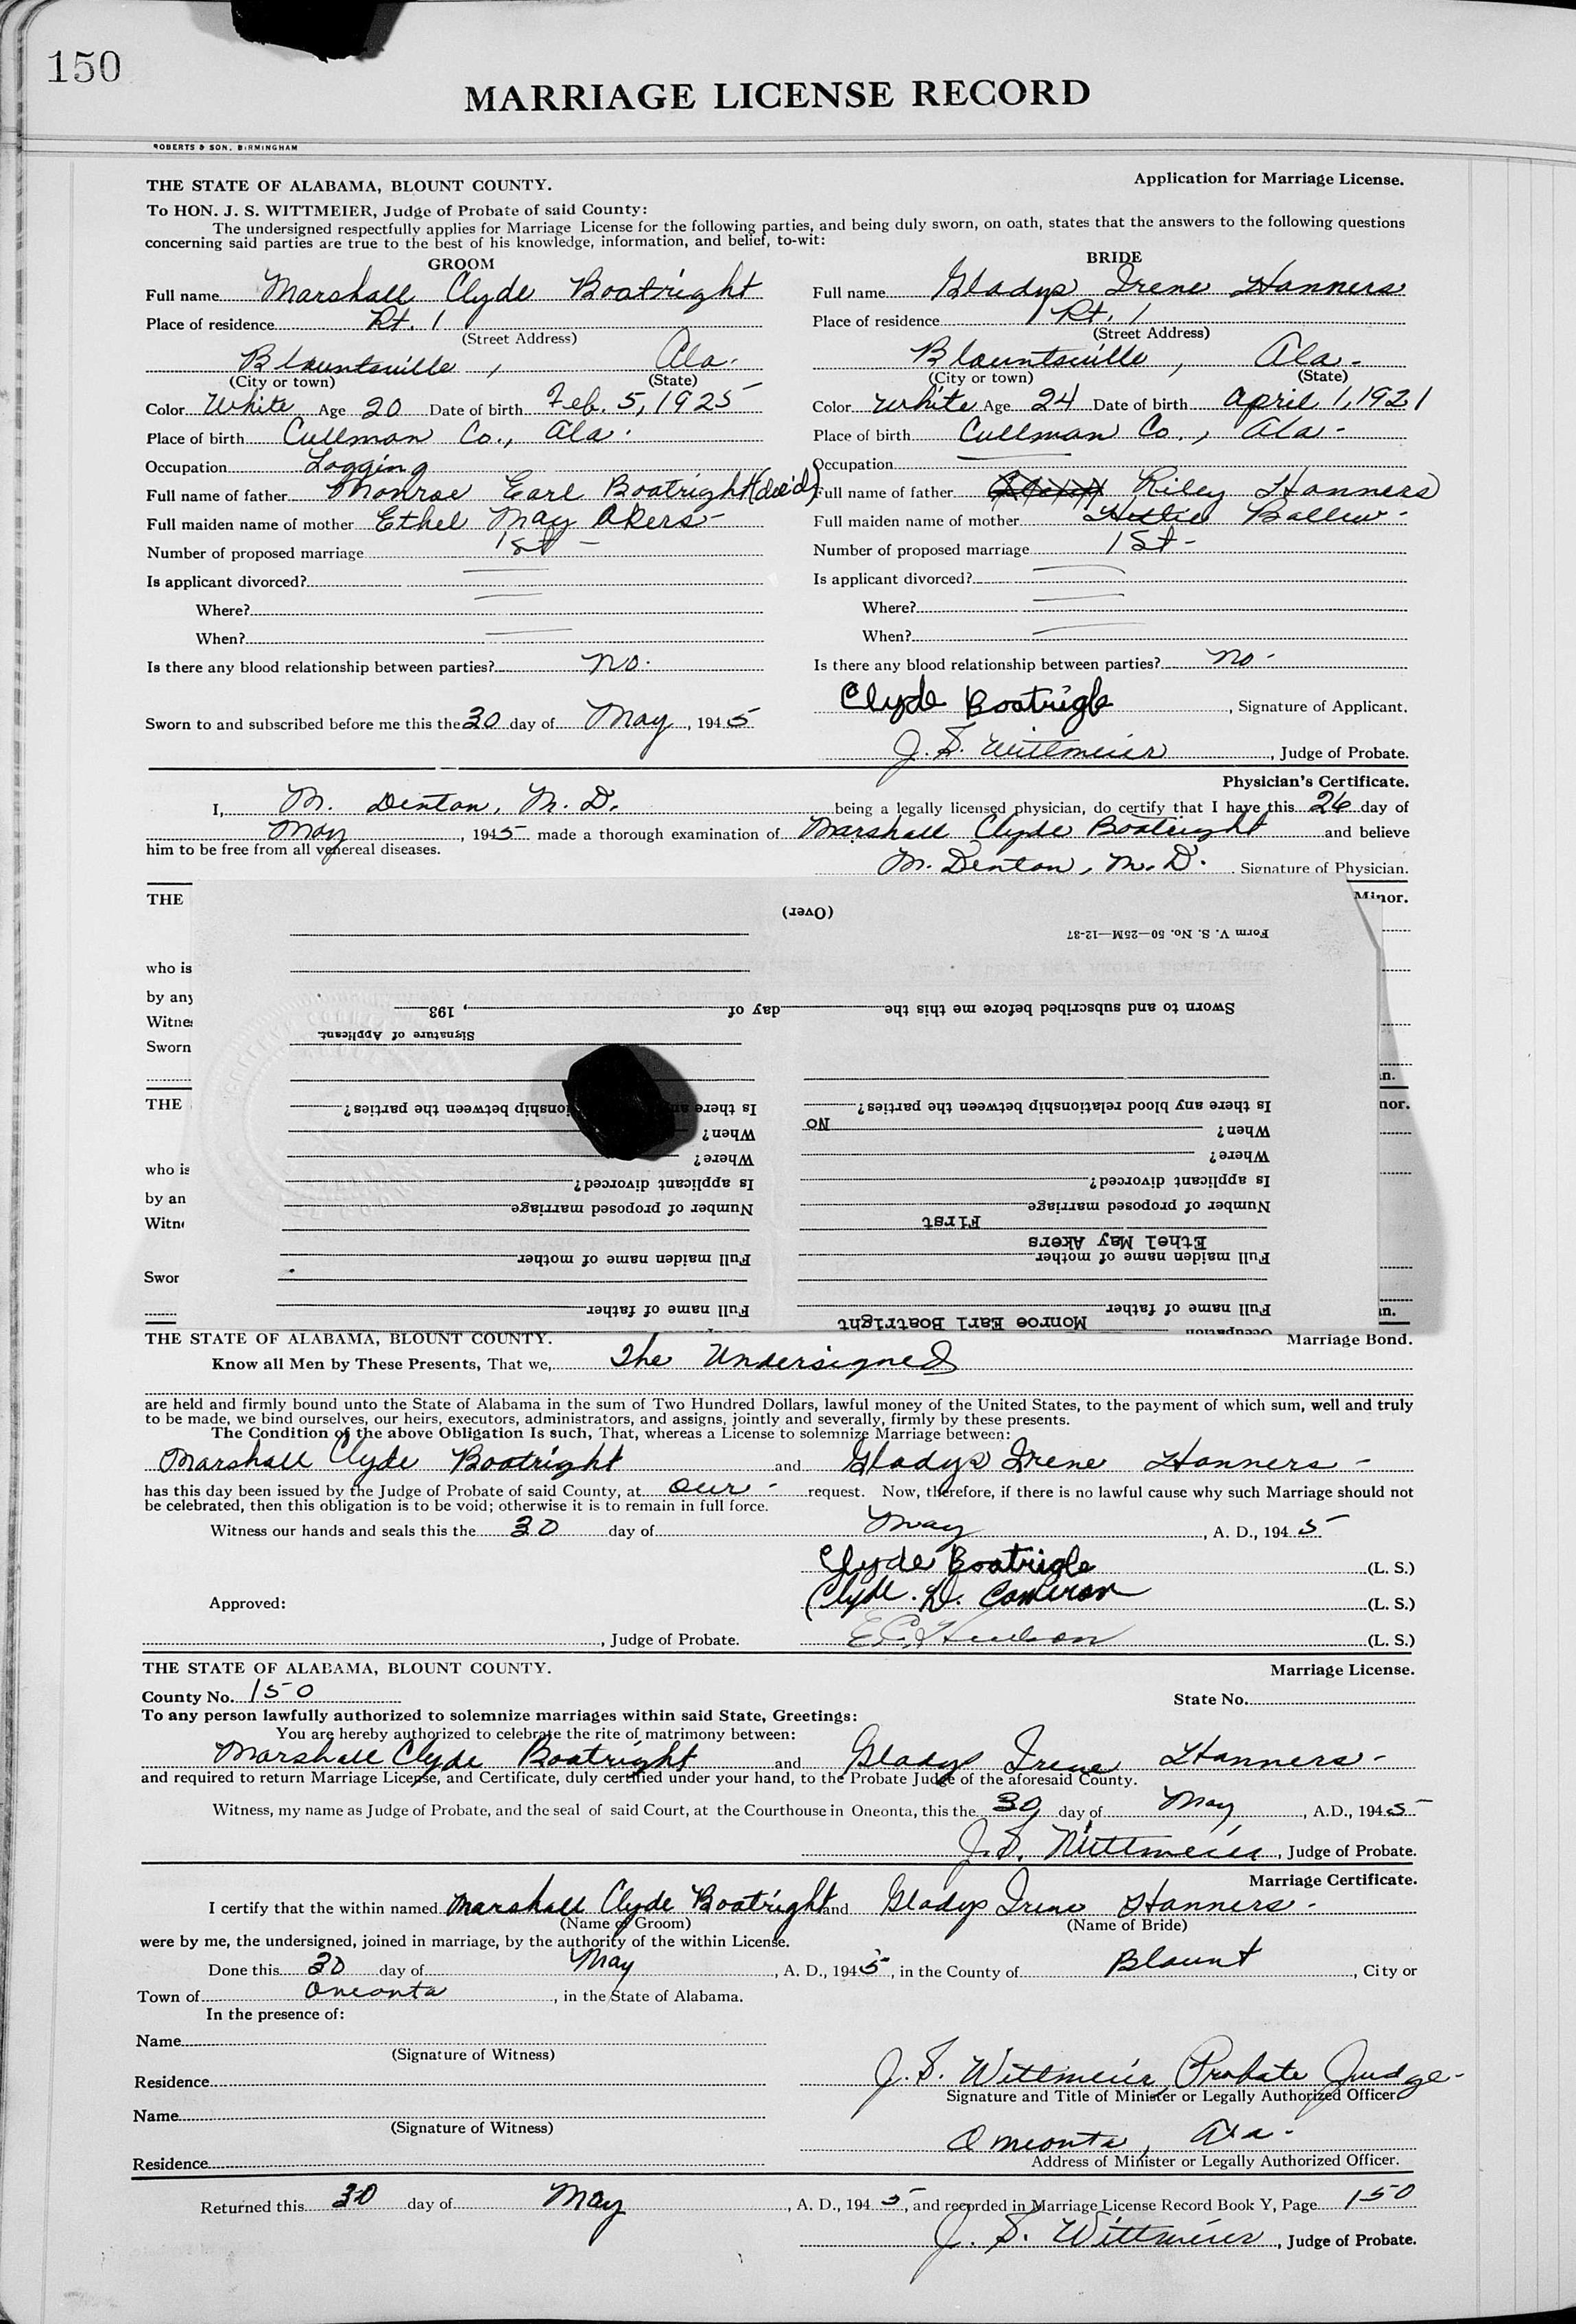 150
MARRIAGE LICENSE RECORD
ROBERTS & SON, BIRMINGHAM
THE STATE OF ALABAMA, BLOUNT COUNTY. Application for Marriage License.
To HON. J. S. WITTMEIER, Judge of Probate of said County:
The undersigned respectfully applies for Marriage License for the following parties, and being duly sworn, on oath, states that the answers to the following questions
concerning said parties are true to the best of his knowledge, information, and belief, to-wit:
GROOM BRIDE
Full name Marshall Clyde Boatright Full name Gladys Irene Hanners
Place of residence Rt. 1 Place of residence Rt. 1
(Street Address) (Street Address)
Blountsville, Ala. Blountsville, Ala-
(City or town) (State) (City or town) (State)
Color White Age 20 Date of birth Feb. 5, 1925 Color White Age 24 Date of birth April 1, 1921
Place of birth Cullman Co., Ala. Place of birth Cullman Co., Ala-
Occupation Logging Occupation
Full name of father Monroe Earl Boatright (dec'd) Full name of father Riley Hanners
Full maiden name of mother Ethel May Akers- Full maiden name of mother Ballew-
Number of proposed marriage 1st - Number of proposed marriage 1st-
Is applicant divorced? Is applicant divorced?
Where? Where?
When? When?
Is there any blood relationship between parties? No. Is there any blood relationship between parties? No-
Clyde Boatrigle, Signature of Applicant.
Sworn to and subscribed before me this the 30 day of May, 1945
J. S. Wittmeier, Judge of Probate.
Physician's Certificate.
I, M. Denton, M. D. being a legally licensed physician, do certify that I have this 26 day of
May, 1945 made a thorough examination of Marshall Clyde Boatright and believe
him to be free from all venereal diseases.
M. Denton, M. D. Signature of Physician.
THE Minor.
who is
by any
Witne
Sworn
n.
THE nor.
who is
by an
Witn
Swor
n.
(Over)
Form V. S. No. 50—25M—12-37
Sworn to and subscribed before me this the day of, 193
Signature of Applicant
Is there any blood relationship between the parties? Is there an ionship between the parties?
No
When? When?
Where? Where?
Is applicant divorced? Is applicant divorced?
Number of proposed marriage Number of proposed marriage
First
Ethel May Akers
Full maiden name of mother Full maiden name of mother
Full name of father Full name of father
Monroe Earl Boatright
Occupation
THE STATE OF ALABAMA, BLOUNT COUNTY. Marriage Bond.
Know all Men by These Presents, That we, The Undersigned
are held and firmly bound unto the State of Alabama in the sum of Two Hundred Dollars, lawful money of the United States, to the payment of which sum, well and truly
to be made, we bind ourselves, our heirs, executors, administrators, and assigns, jointly and severally, firmly by these presents.
The Condition of the above Obligation Is such, That, whereas a License to solemnize Marriage between:
Marshall Clyde Boatright and Gladys Irene Hanners -
has this day been issued by the Judge of Probate of said County, at our - request. Now, therefore, if there is no lawful cause why such Marriage should not
be celebrated, then this obligation is to be void; otherwise it is to remain in full force.
Witness our hands and seals this the 30 day of May, A. D., 1945
Clyde Boatrigle (L. S.)
Approved: Clyde. D. Cameron (L. S.)
, Judge of Probate. E. C. Hudson (L. S.)
THE STATE OF ALABAMA, BLOUNT COUNTY. Marriage License.
County No. 150 State No.
To any person lawfully authorized to solemnize marriages within said State, Greetings:
You are hereby authorized to celebrate the rite of matrimony between:
Marshall Clyde Boatright and Gladys Irene Hanners-
and required to return Marriage License, and Certificate, duly certified under your hand, to the Probate Judge of the aforesaid County.
Witness, my name as Judge of Probate, and the seal of said Court, at the Courthouse in Oneonta, this the 30 day of May, A.D., 1945
J. S. Wittmeier, Judge of Probate.
Marriage Certificate.
I certify that the within named Marshall Clyde Boatright and Gladys Irene Hanners-
(Name of Groom) (Name of Bride)
were by me, the undersigned, joined in marriage, by the authority of the within License.
Done this 30 day of May, A. D., 1945, in the County of Blount, City or
Town of Oneonta, in the State of Alabama.
In the presence of:
Name
(Signature of Witness)
Residence J. S. Wittmeier, Probate Judge-
Signature and Title of Minister or Legally Authorized Officer
Name
(Signature of Witness) Oneonta, Ala-
Residence Address of Minister or Legally Authorized Officer.
Returned this 30 day of May, A. D., 1945, and recorded in Marriage License Record Book Y, Page 150
J. S. Wittmeier, Judge of Probate.